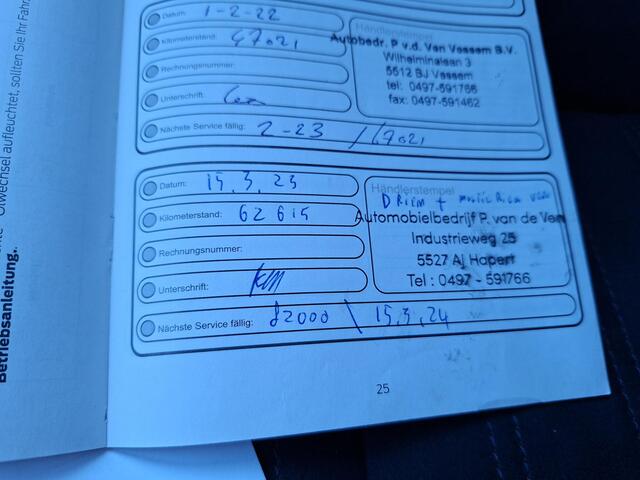 Datum: 1-2-22
Kilometerstand: 47021
Rechnungsnummer:
Unterschrift:
Nächste Service fällig: 2-23 / 67021
Händlerstempel
Autobedr. P v.d. Ven Vessem B.V.
Wilhelminalaan 3
5512 BJ Vessem
tel: 0497-591766
fax: 0497-591462
Datum: 15.3.23
Kilometerstand: 62615
Rechnungsnummer:
Unterschrift:
Nächste Service fällig: 82000 \ 15.3.24
Händlerstempel
Automobielbedrijf P. van de Ven
Industrieweg 25
5527 AJ Hapert
Tel : 0497 - 591766
25
Ölwechsel aufleuchtet, sollten Sie Ihr Fahr
Betriebsanleitung.